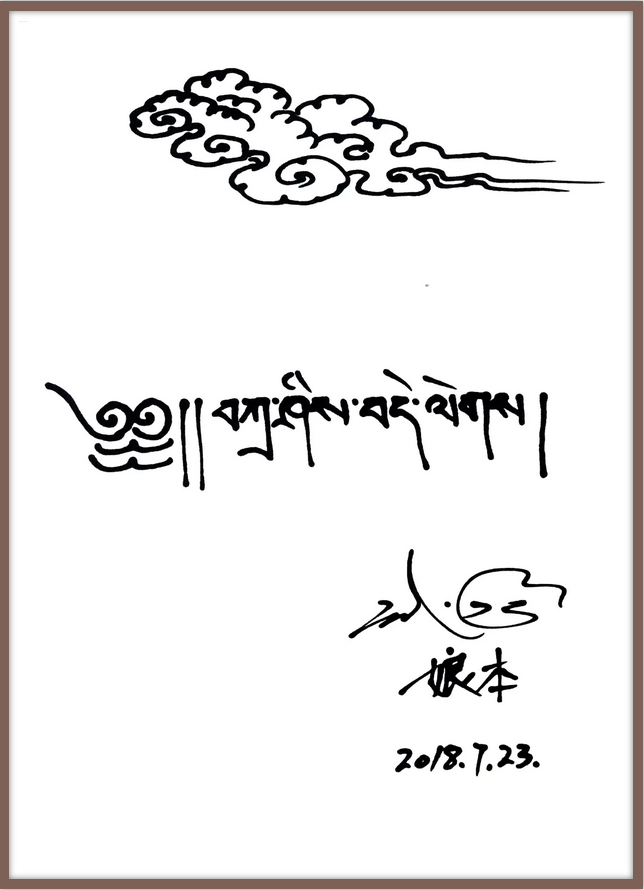 ༄༅།། བཀྲ་ཤིས་བདེ་ལེགས།
娘本
2018.7.23.